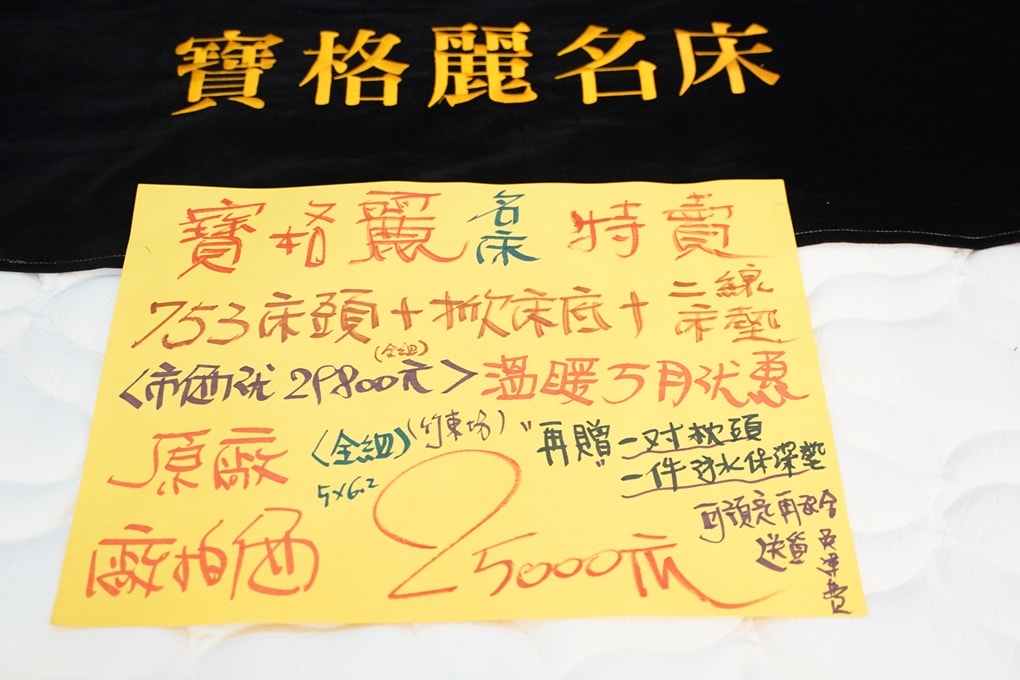 寶格麗名床
寶格麗名床 特賣
753床頭+掀床底+二線床墊
(全組)
<市価优29800元>溫暖5月优惠
原廠 (全組)(竹東坊)"再贈"一对枕頭
5×6.2 一件防水保潔墊
廠拍価 25000元
可預定再配合
送貨 免運費